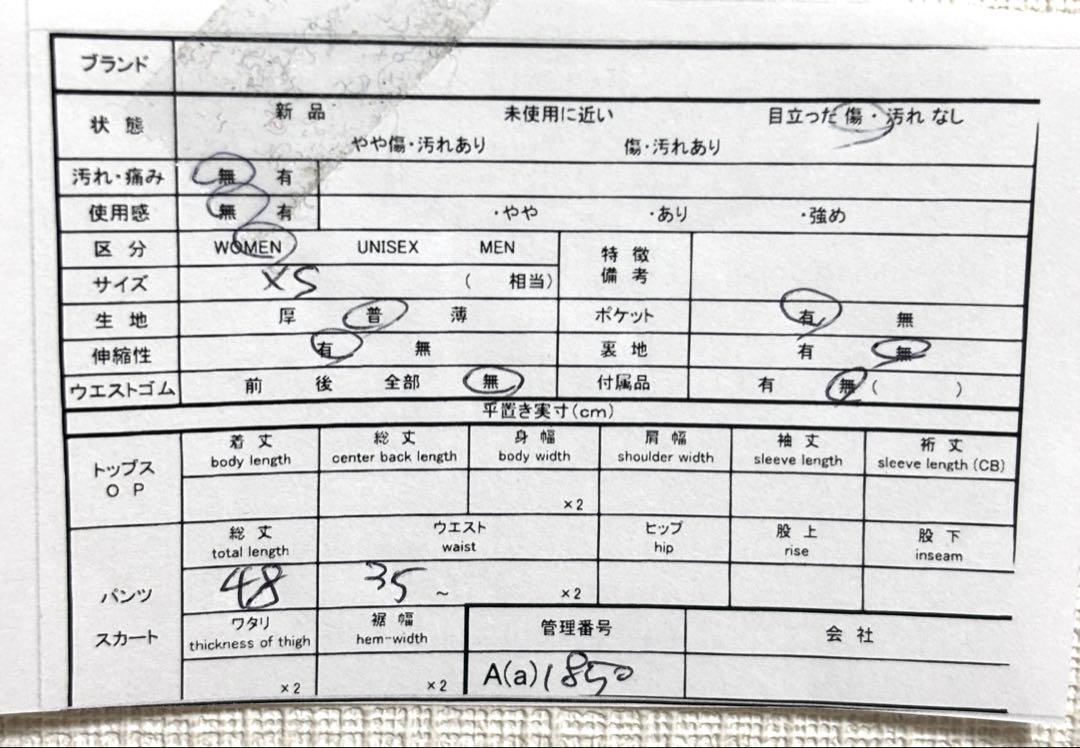 ブランド
状態 新品 未使用に近い 目立った傷・汚れなし
やや傷・汚れあり 傷・汚れあり
汚れ・痛み 無 有
使用感 無 有 ・やや ・あり ・強め
区分 WOMEN UNISEX MEN 特徴備考
サイズ XS ( 相当)
生地 厚 普 薄 ポケット 有 無
伸縮性 有 無 裏地 有 無
ウエストゴム 前 後 全部 無 付属品 有 無( )
平置き実寸(cm)
トップス OP 着丈 総丈 身幅 肩幅 袖丈 裄丈
body length center back length body width shoulder width sleeve length sleeve length (CB)
×2
パンツ スカート 総丈 ウエスト ヒップ 股上 股下
total length waist hip rise inseam
48 35 ~ ×2
ワタリ 裾幅 管理番号 会社
thickness of thigh hem-width
×2 ×2 A(a)1850